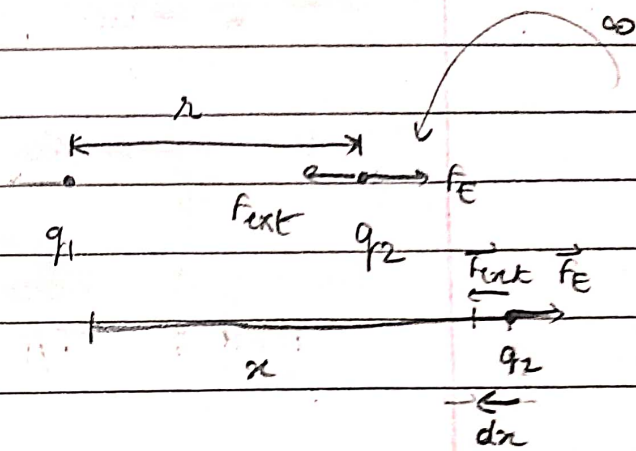 ∞
r
F_E
F_ext
q_1 q_2
F_ext F_E
x q_2
dx